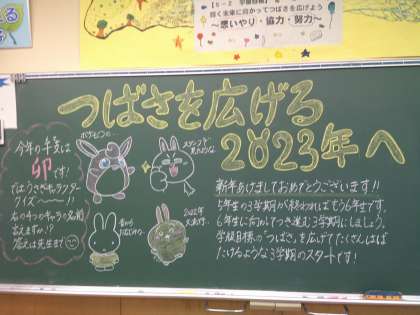 明るく未来に向かってつばさを広げよう
〜思いやり・協力・努力〜
つばさを広げる
2023年へ
今年の干支は
卯です!
ではうさぎキャラクター
クイズ〜〜〜!!
右の4つのキャラの名前
言えますか!?
答えは先生まで
ポケモンの…
スタンプで
見たような
昔から
おなじみの…
2022年
大流行…
新年あけましておめでとうございます!!
5年生の3学期が終わればもう6年生です。
6年生に向かってつき進む3学期にしましょう。
学級目標の「つばさ」を広げてたくさんはば
たけるような3学期のスタートです!